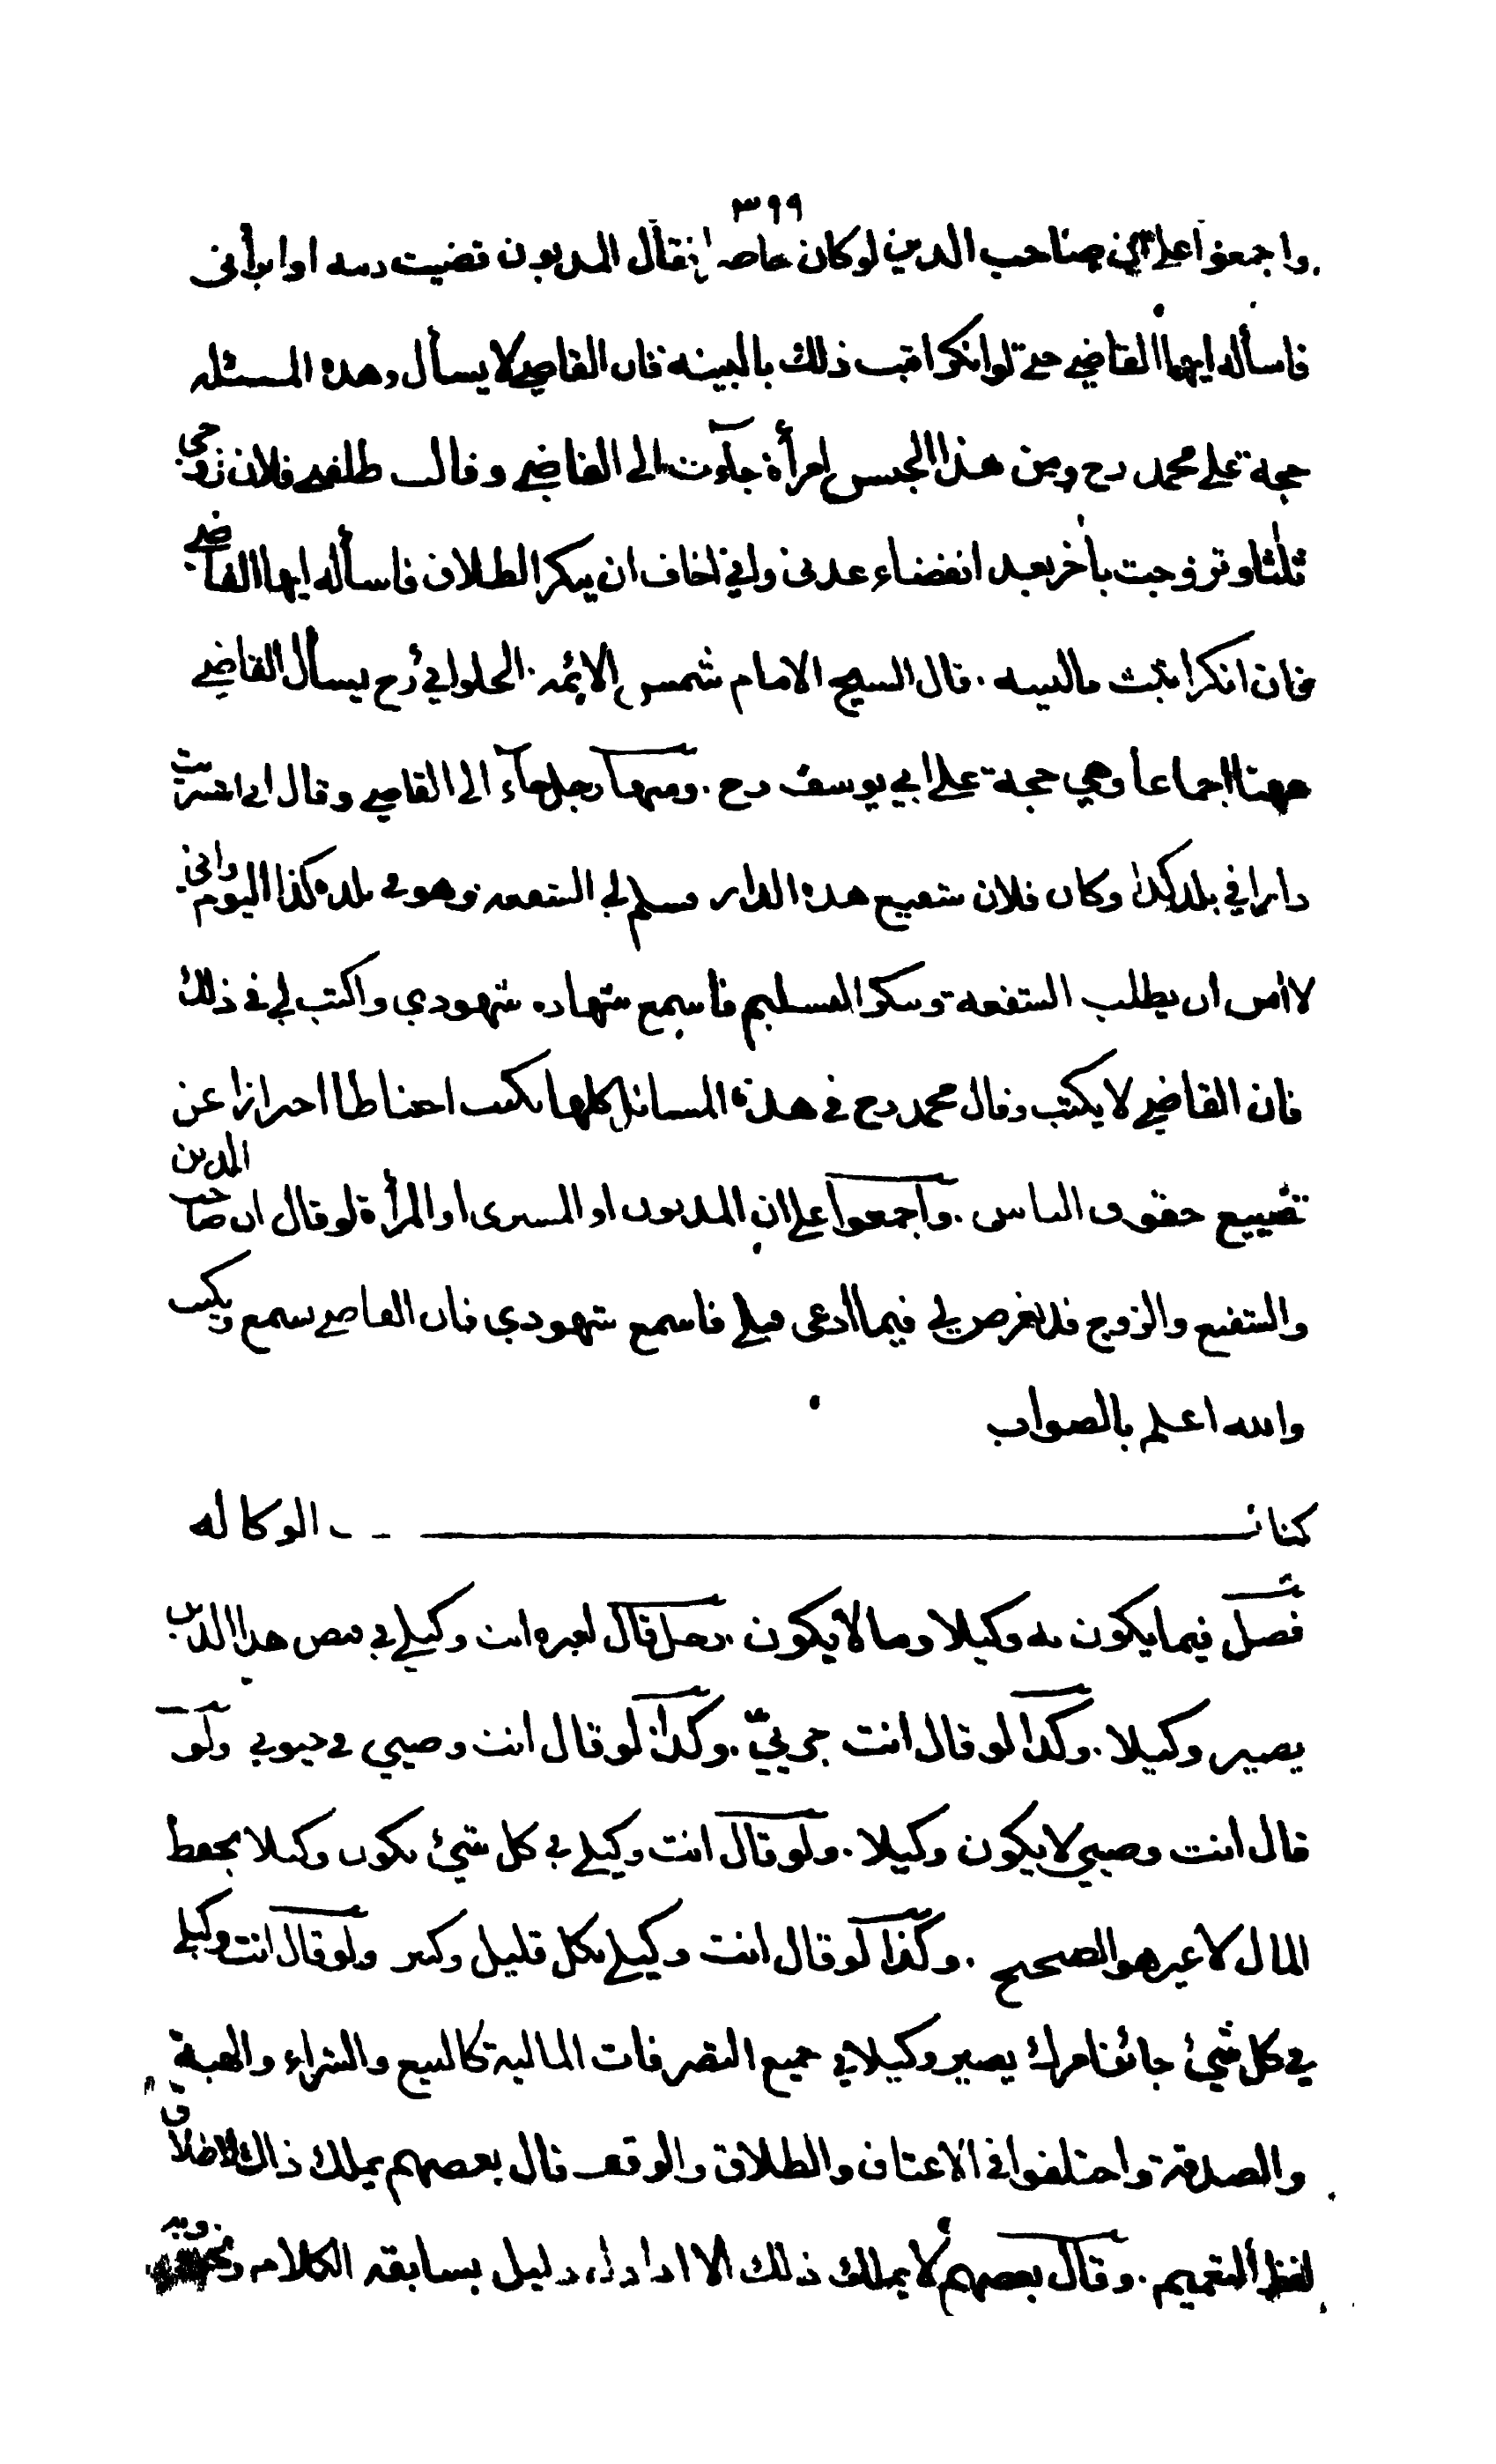 ٣٩٩
واجمعوا على ان صاحب الدين لو كان حاضرا فقال المديون قضيت دينه او ابرأني
فاسأله ايها القاضي حتى لو انكر اثبت ذلك بالبينة فان القاضي لا يسأل وهذه المسئلة
حجة على محمد رح ومن هذا الجنس امرأة جاءت الى القاضي وقالت طلقني فلان زوجي
ثلثا وتزوجت باخر بعد انقضاء عدتي واني اخاف ان ينكر الطلاق فاسأله ايها القاضي
فان انكر اثبت بالبينة . قال الشيخ الامام شمس الائمة الحلواني رح يسأل القاضي
ههنا اجماعا وهي حجة على ابي يوسف رح . ومنها رجل جاء الى القاضي وقال اني اشتريت
دارا في بلد كذا وكان فلان شفيع هذه الدار فسلم لي الشفعة وهو في بلدة كذا اليوم واني
لا امن ان يطلب الشفعة وينكر التسليم فاسمع شهادة شهودي واكتب لي في ذلك
فان القاضي لا يكتب وقال محمد رح في هذه المسائل كلها يكتب احتياطا احترازا عن
تضييع حقوق الناس . واجمعوا على ان المديون او المشتري او المرأة لو قال ان صاحب الدين
والشفيع والزوج قد تعرض لي فيما ادعى قبلي فاسمع شهودي فان القاضي يسمع ويكتب
والله اعلم بالصواب
كتاب الوكاله
فصل فيما يكون به وكيلا وما لا يكون . رجل قال لغيره انت وكيلي في قبض هذا الدين
يصير وكيلا . وكذا لو قال انت جريي . وكذا لو قال انت وصيي في حيوتي ولو
قال انت وصيي لا يكون وكيلا . ولو قال انت وكيلي في كل شيئ يكون وكيلا بحفظ
المال لا غير هو الصحيح . وكذا لو قال انت وكيلي بكل قليل وكثير ولو قال انت وكيلي
في كل شيئ جائز امرك يصير وكيلا في جميع التصرفات المالية كالبيع والشراء والهبة
والصدقة واختلفوا في الاعتاق والطلاق والوقف قال بعضهم يملك ذلك لاطلاق
لفظ التعميم . وقال بعضهم لا يملك ذلك الا اذا دل دليل بسابقة الكلام ونحوه